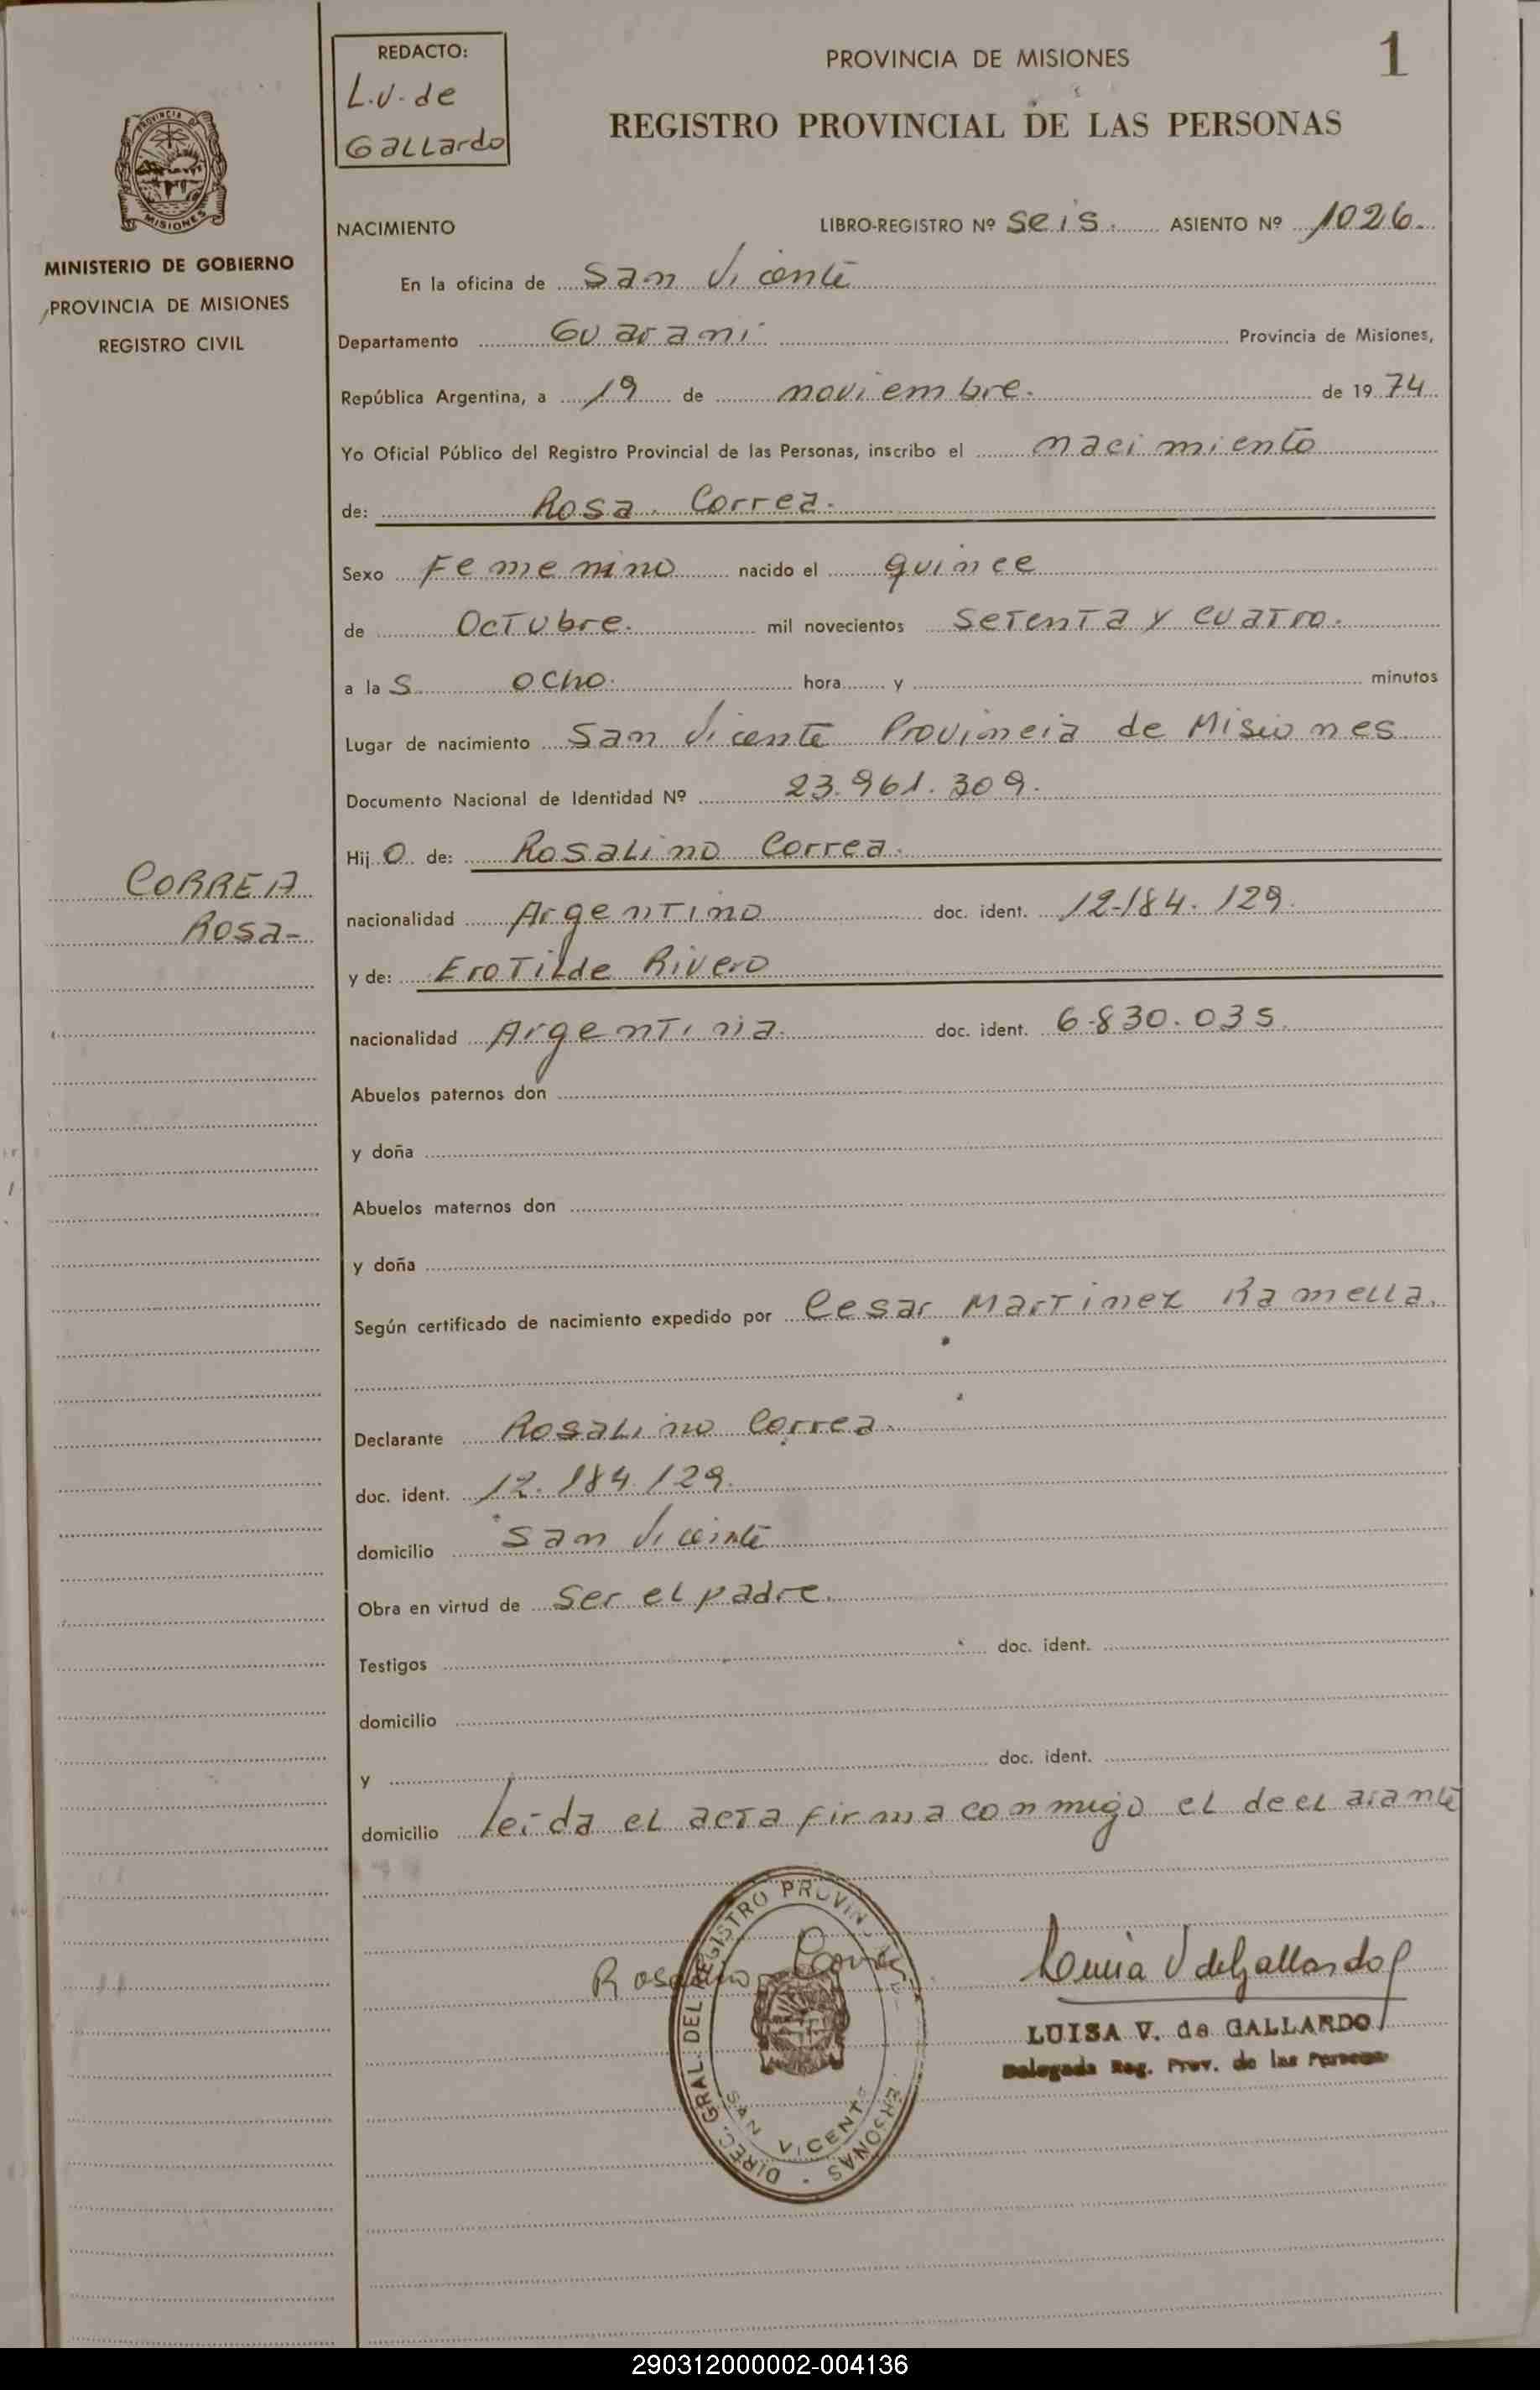 REDACTO:
L.V. de
Gallardo
PROVINCIA DE MISIONES
1
REGISTRO PROVINCIAL DE LAS PERSONAS
PROVINCIA DE
MISIONES
MINISTERIO DE GOBIERNO
PROVINCIA DE MISIONES
REGISTRO CIVIL
NACIMIENTO LIBRO-REGISTRO Nº seis. ASIENTO Nº 1026.
En la oficina de San Vicente
Departamento Guarani Provincia de Misiones,
República Argentina, a 19 de noviembre. de 1974
Yo Oficial Público del Registro Provincial de las Personas, inscribo el nacimiento
de: Rosa Correa.
Sexo Femenino nacido el quince
de Octubre. mil novecientos setenta y cuatro.
a las ocho. hora y minutos
Lugar de nacimiento San Vicente Provincia de Misiones
Documento Nacional de Identidad Nº 23.961.309.
Hijo de: Rosalino Correa.
CORREA
Rosa-
nacionalidad Argentino doc. ident. 12-184.129.
y de: Erotilde Rivero
nacionalidad Argentina. doc. ident. 6-830.035
Abuelos paternos don
y doña
Abuelos maternos don
y doña
Según certificado de nacimiento expedido por Cesar Martinez Ramella.
Declarante Rosalino Correa.
doc. ident. 12.184.129.
domicilio San Viceinte
Obra en virtud de ser el padre.
Testigos doc. ident.
domicilio
y doc. ident.
domicilio leida el acta firma conmigo el declarante
Rosalino Correa
DIREC. GRAL. DEL REGISTRO PROVIN PERSONAS
SAN VICENTE
Luisa V de Gallardo
LUISA V. de GALLARDO
Delegada Reg. Prov. de las Personas
290312000002-004136